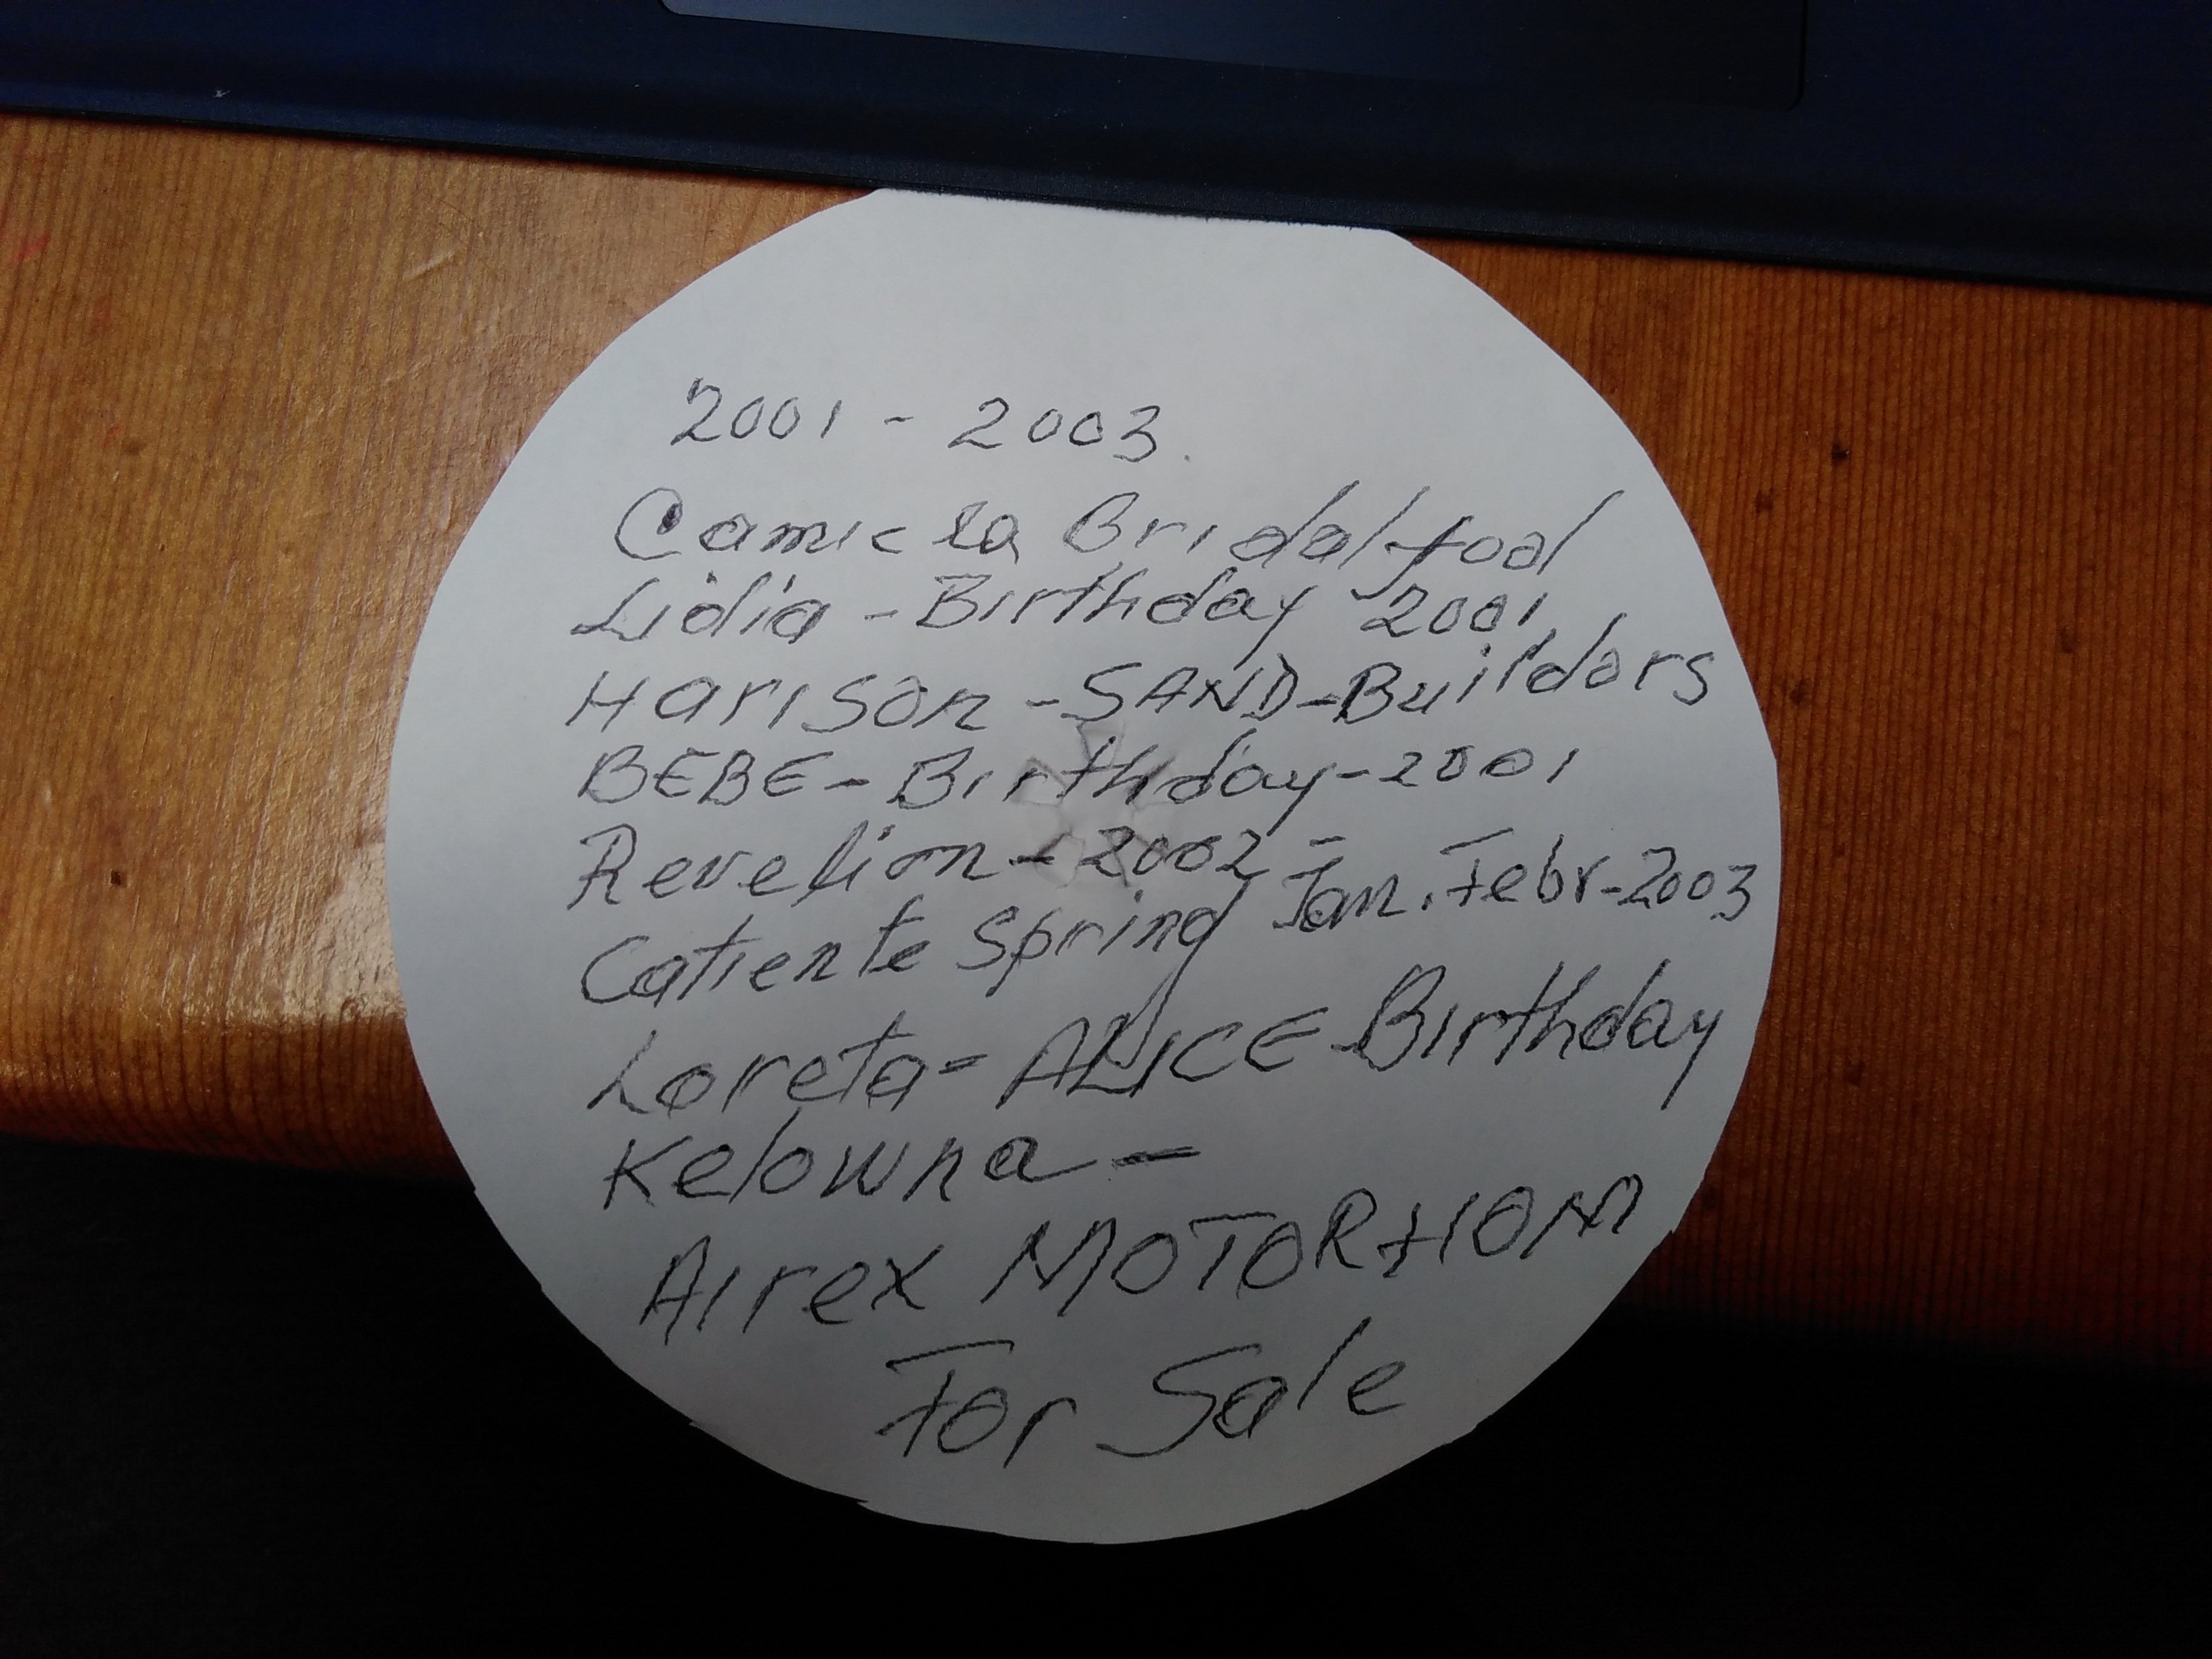 2001 - 2003.
Camiela Bridal food
Lidia - Birthday 2001
Harison - SAND - Buildors
BEBE - Birthday - 2001
Revelion - 2002 -
Catiente Spring Jan. Febr - 2003
Loreta = ALICE Birthday
Kelowna -
Airex MOTORHOM
For Sale